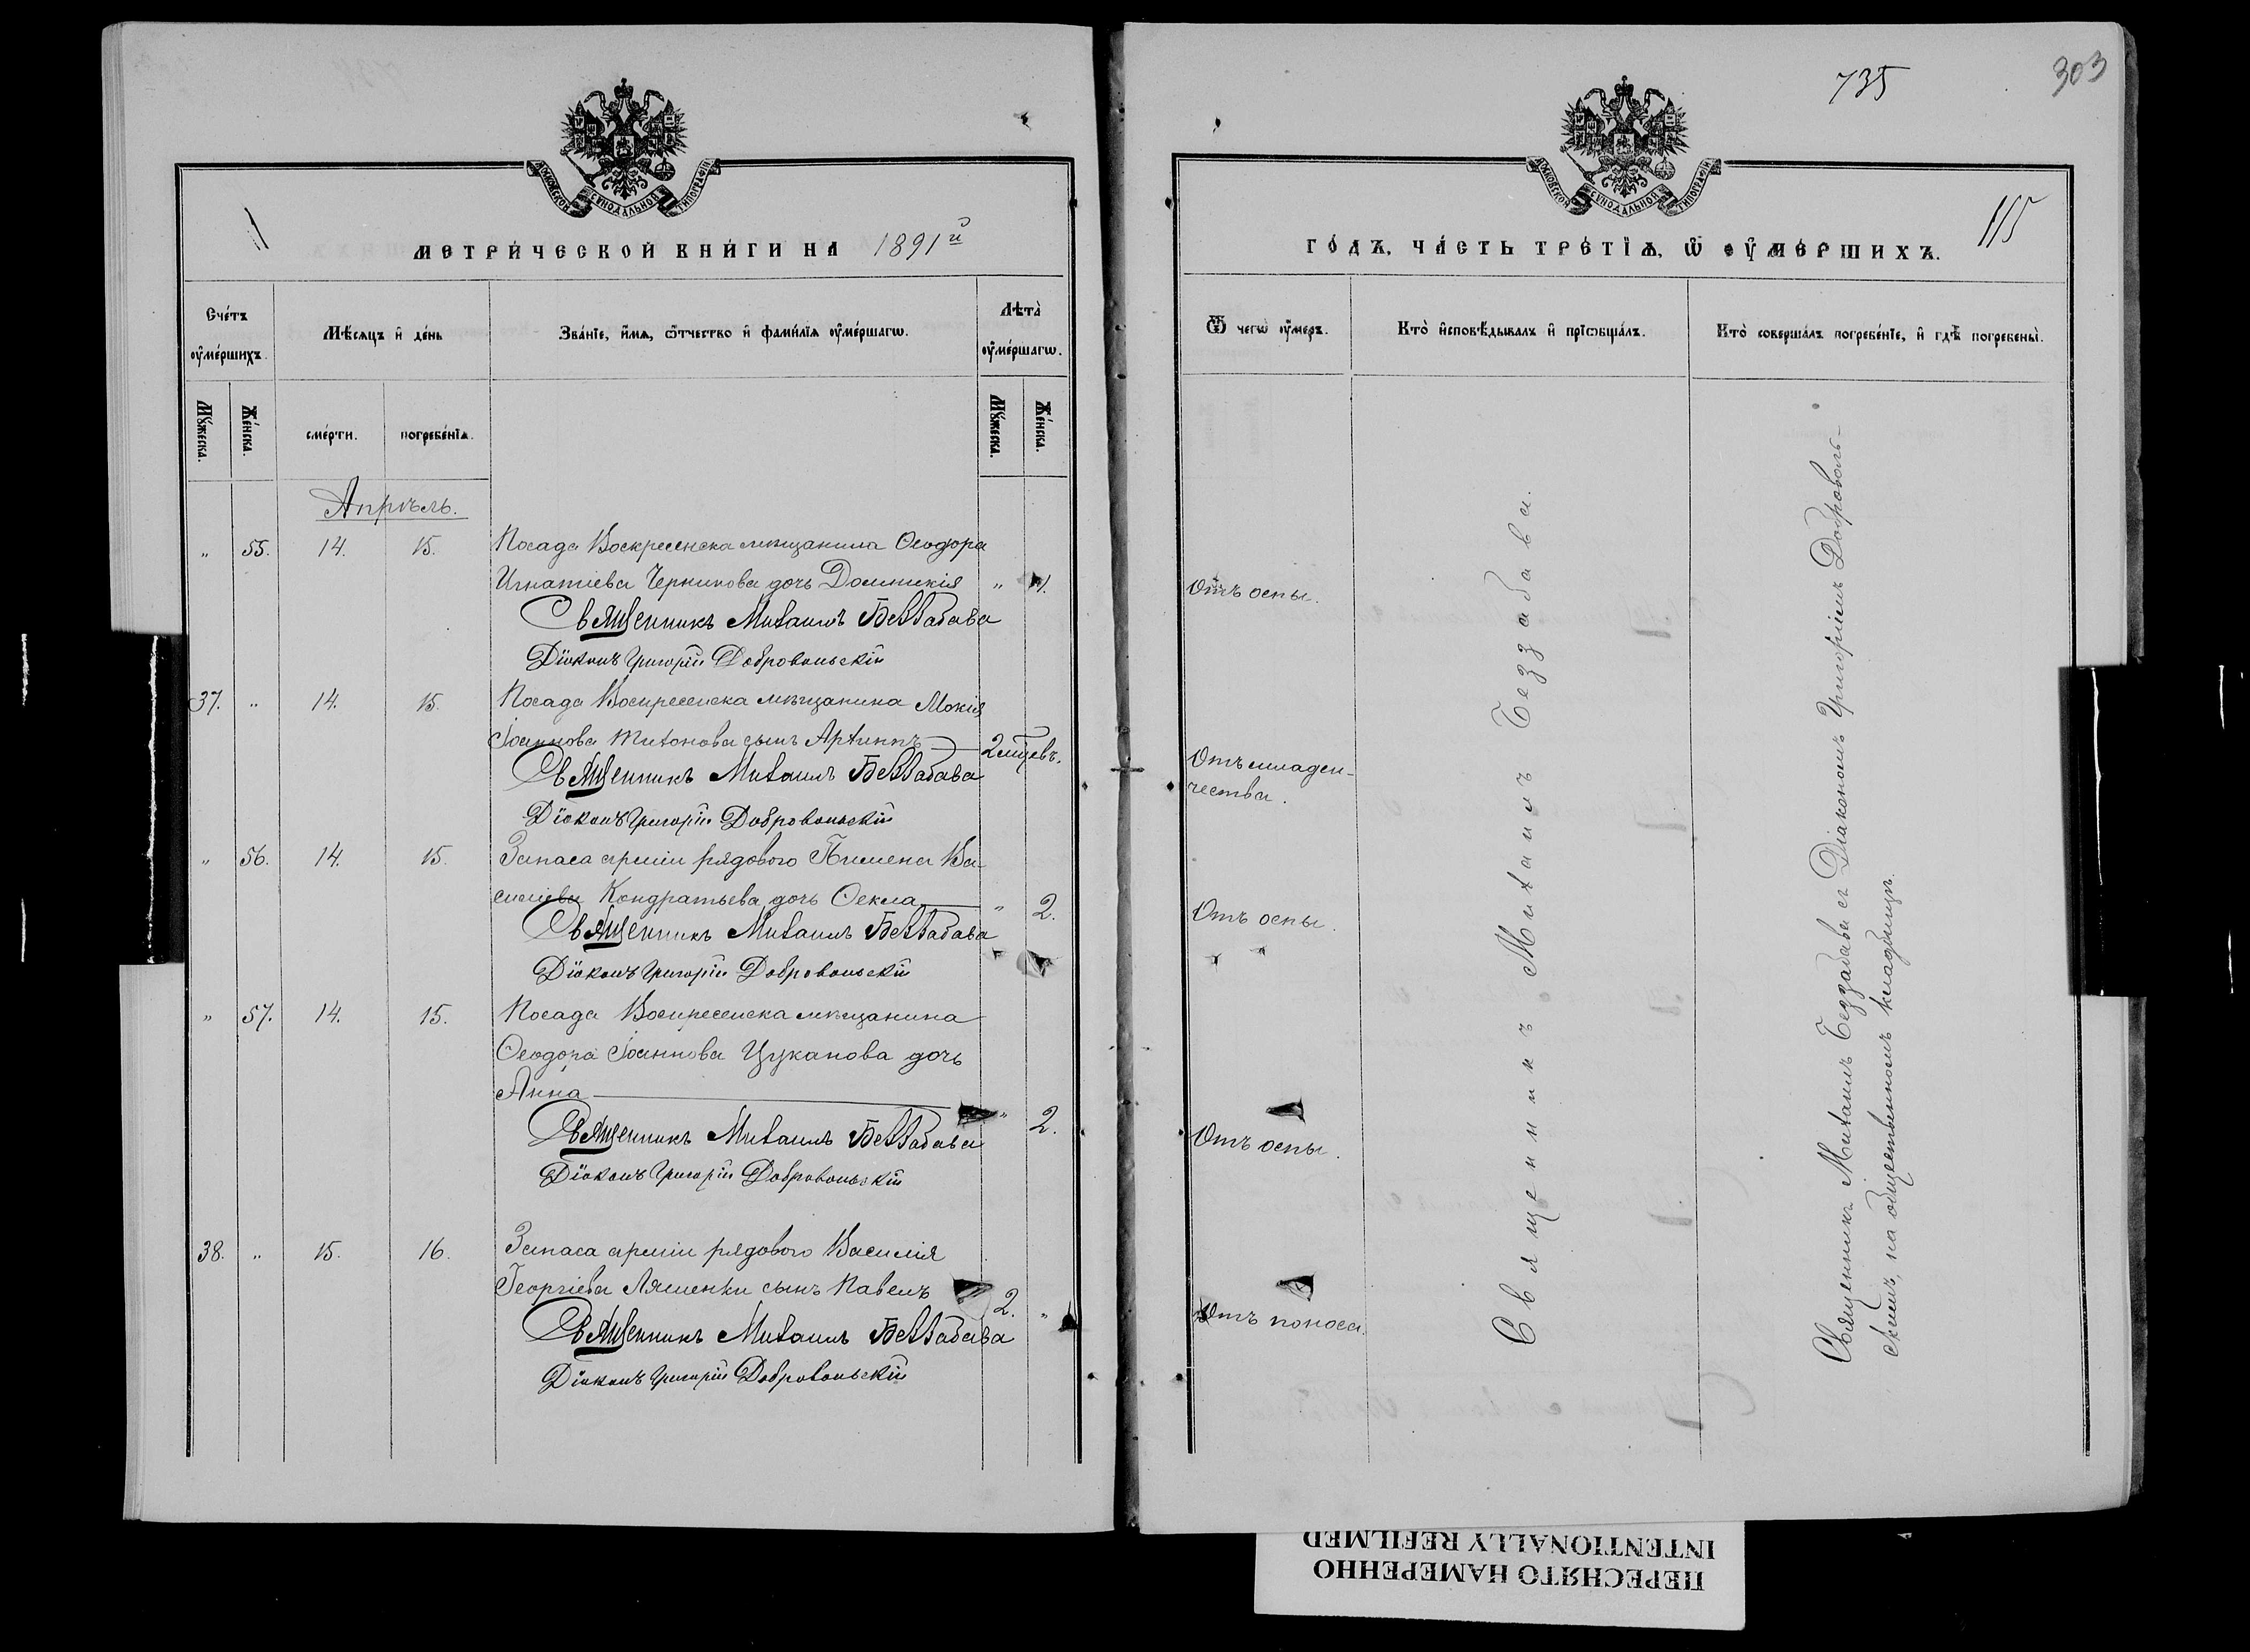 МОСКОВСКОЙ СѴНОДАЛЬНОЙ ТИПОГРАФІИ
МЕТРИ́ЧЕСКОЙ КНИ́ГИ НА 1891й
Сче́тъ ᲂу҆ме́ршихъ.
Мѣ́сяцъ и҆ де́нь
Зва́нїе, и҆́мѧ, ѻ҆́тчество и҆ фами́лїѧ ᲂу҆ме́ршагѡ.
Лѣта̀ ᲂу҆ме́ршагѡ.
Мꙋ́жеска.
Же́нска.
сме́рти.
погребе́нїѧ.
Мꙋ́жеска.
Же́нска.
Апрѣль.
„ 55. 14. 15. Посада Воскресенска мѣщанина Ѳеодора
Игнатіева Черникова дочь Домникія „
Священникъ Михаилъ Беззабава
Діаконъ Григорій Добровольскій
37. „ 14. 15. Посада Воскресенска мѣщанина Мокія
Іоаннова Тихонова сынъ Архиппъ 2 мѣсяцевъ.
Священникъ Михаилъ Беззабава
Діаконъ Григорій Добровольскій
„ 56. 14. 15. Запаса арміи рядового Пимена Ва-
силіева Кондратьева дочь Ѳекла „ 2.
Священникъ Михаилъ Беззабава
Діаконъ Григорій Добровольскій
„ 57. 14. 15. Посада Воскресенска мѣщанина
Ѳеодора Іоаннова Цуканова дочь
Анна „ 2.
Священникъ Михаилъ Беззабава
Діаконъ Григорій Добровольскій
38. „ 15. 16. Запаса арміи рядового Василія
Георгіева Ляшенки сынъ Павелъ 2. „
Священникъ Михаилъ Беззабава
Діаконъ Григорій Добровольскій
735
303
115
МОСКОВСКОЙ СѴНОДАЛЬНОЙ ТИПОГРАФІИ
ГО́ДЪ, ЧА́СТЬ ТРЕ́ТЇѦ, Ѡ҆ ᲂУ҆МЕ́РШИХЪ.
Ѿ чегѡ̀ ᲂу҆́меръ.
Кто̀ и҆сповѣ́дывалъ и҆ прїѡбща́лъ.
Кто̀ соверша́лъ погребе́нїе, и҆ гдѣ̀ погребены̀.
Отъ оспы.
Отъ младен-
чества.
Отъ оспы.
Отъ оспы.
Отъ поноса.
Священникъ Михаилъ Беззабава.
Священникъ Михаилъ Беззабава съ Діакономъ Григоріемъ Доброволь-
скимъ, на общественномъ кладбищѣ.
ПЕРЕСНЯТО НАМЕРЕННО
INTENTIONALLY REFILMED